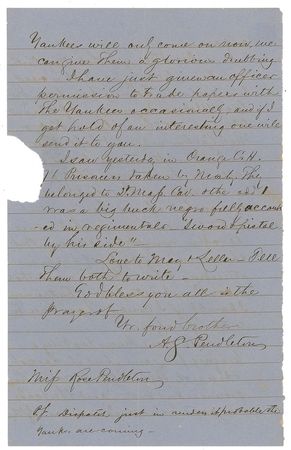 Yankees will only come on now, we
can give them a glorious drubbing.
I have just given an officer
permission to trade papers with
the Yankees occasionally, and if I
get hold of an interesting one will
send it to you.
I saw yesterday in Orange C.H.
Prisoners taken by Mosby. They
belonged to 2d Mass. Cav. &
was a big buck negro fully accoutr
ed in regimentals "sword & pistol
by his side" –
Love to May & Lella – Tell
them both to write –
God bless you all is the
Prayer of
Yr. fond brother
A.S. Pendleton
Miss Rose Pendleton
Dispatch just in renders it probable the
Yankees are coming –